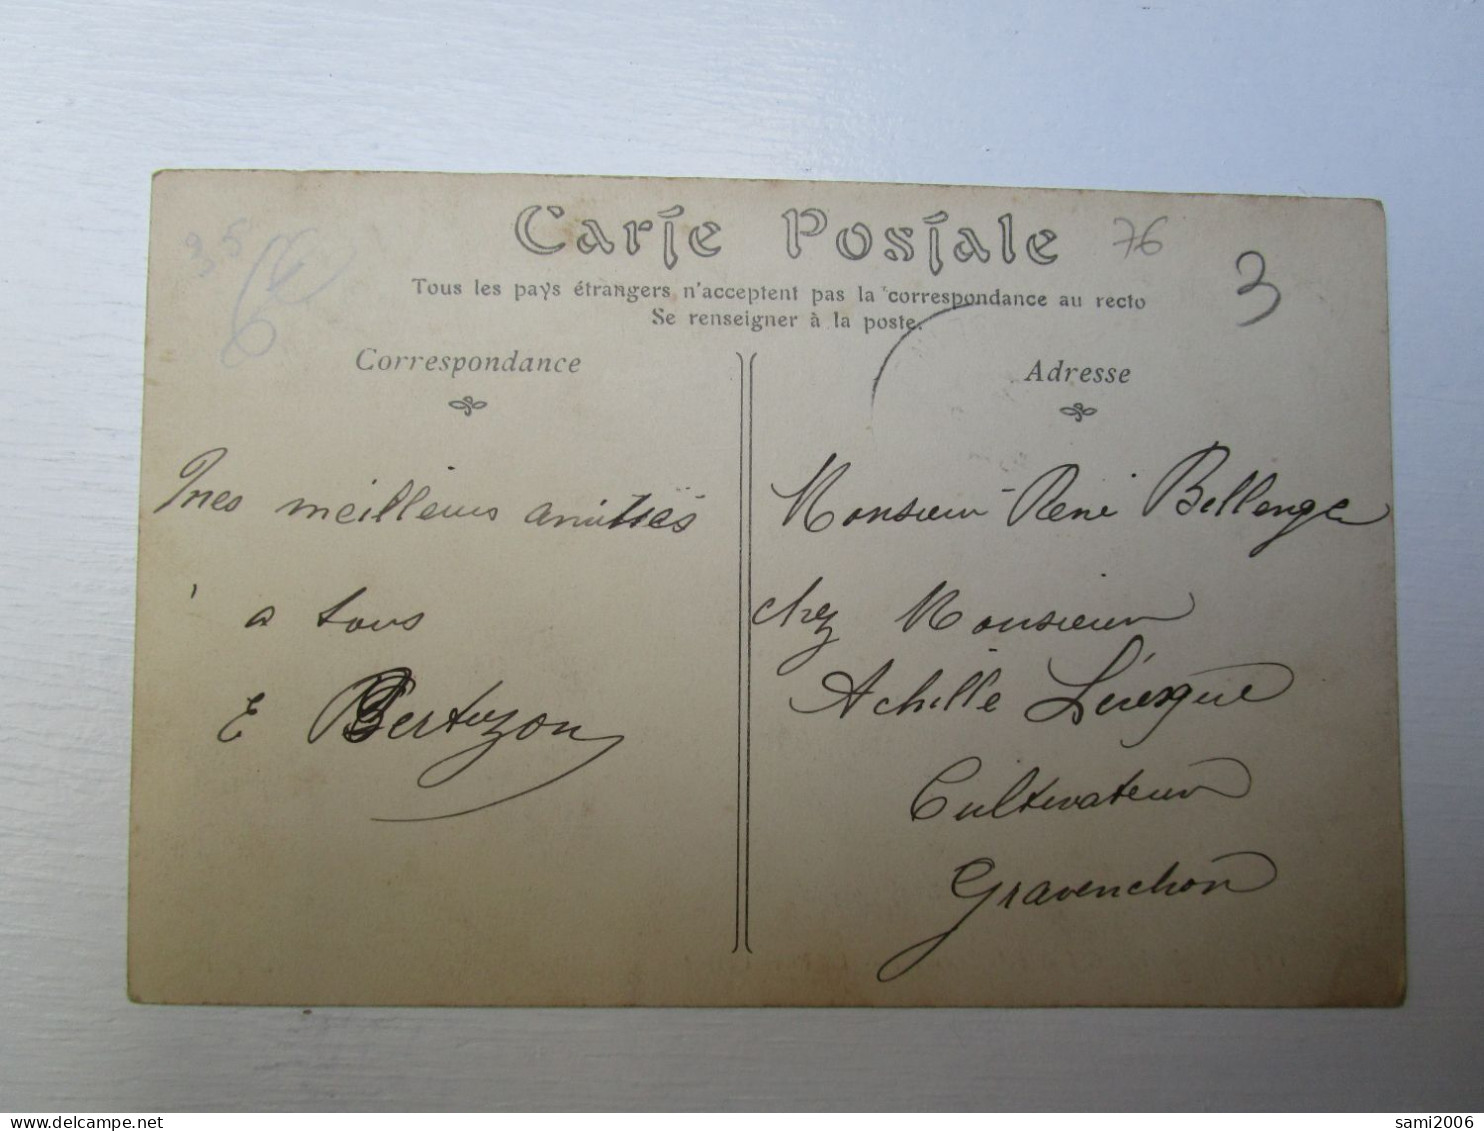 Carte Postale
76
3
35
6
Tous les pays étrangers n'acceptent pas la correspondance au recto
Se renseigner à la poste.
Correspondance
Mes meilleurs amitiés
à tous
E Bertuzon
Adresse
Monsieur René Bellenge
chez Monsieur
Achille Lévesque
Cultivateur
Gravenchon
sami2006